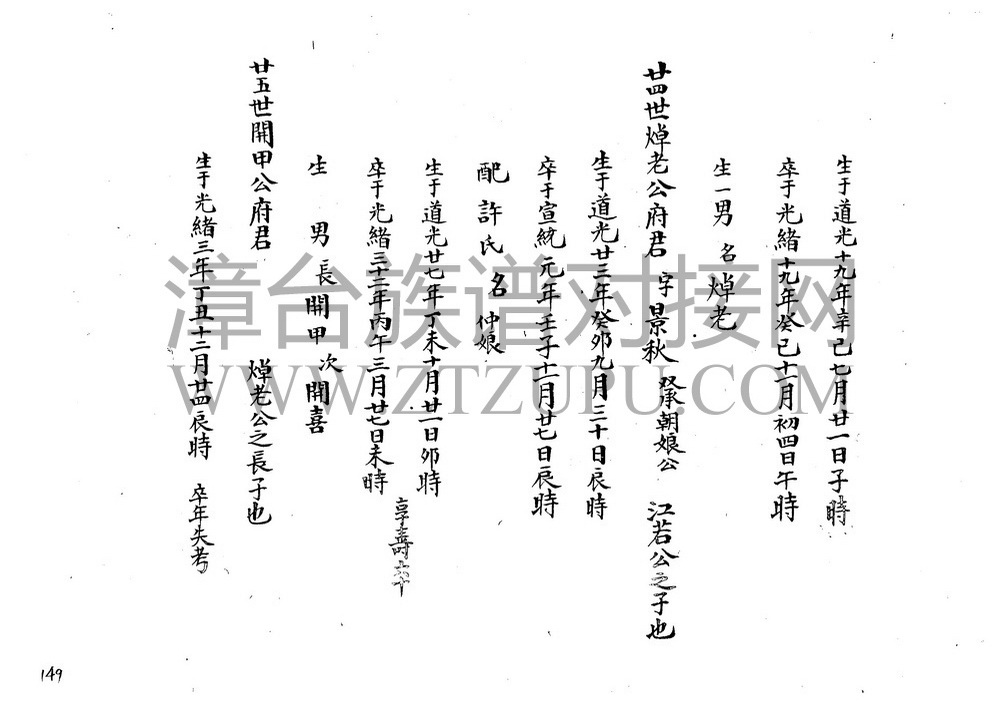 生于道光十九年辛己七月廿一日子時
卒于光緒十九年癸己十一月初四日午時
生一男 名焯老
廿四世焯老公府君 字景秋 承朝娘公 江若公之子也
生于道光廿三年癸卯九月三十日辰時
卒于宣統元年壬子十一月廿七日辰時
配許氏名仲娘
生于道光廿七年丁未十月廿一日卯時
卒于光緒三十二年丙午三月廿七日未時 享壽六十
生 男 長開甲 次開喜
廿五世開甲公府君 焯老公之長子也
生于光緒三年丁丑十二月廿四辰時 卒年失考
149
漳台族谱对接网
WWW.ZTZUPU.COM